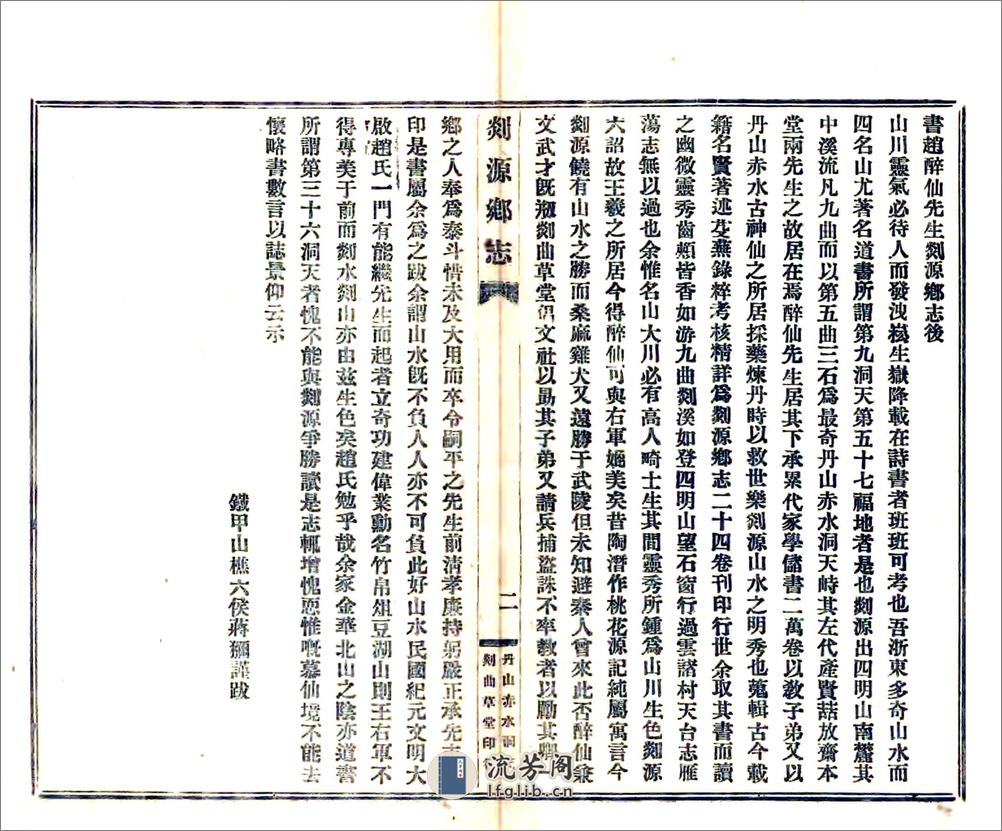 書趙醉仙先生剡源鄉志後
山川靈氣必待人而發洩崧生嶽降載在詩書者班班可考也吾浙東多奇山水而
四名山尤著名道書所謂第九洞天第五十七福地者是也剡源出四明山南麓其
中溪流凡九曲而以第五曲三石為最奇丹山赤水洞天峙其左代產賢喆放齋本
堂兩先生之故居在焉醉仙先生居其下承累代家學儲書二萬卷以敎子弟又以
丹山赤水古神仙之所居採藥煉丹時以救世樂剡源山水之明秀也蒐輯古今載
籍名賢著述芟蕪錄粹考核精詳爲剡源鄉志二十四卷刊印行世余取其書而讀
之幽微靈秀齒頰皆香如游九曲剡溪如登四明山望石窗行過雲諸村天台志雁
蕩志無以過也余惟名山大川必有高人畸士生其間靈秀所鍾爲山川生色剡源
六詔故王羲之所居今得醉仙可與右軍媲美矣昔陶潛作桃花源記純屬寓言今
剡源饒有山水之勝而桑麻雞犬又遠勝于武陵但未知避秦人曾來此否醉仙兼
文武才旣刱剡曲草堂倡文社以勗其子弟又請兵捕盜誅不率敎者以勵其鄉
剡源鄉志
二
丹山赤水洞
剡曲草堂印
鄉之人奉爲泰斗惜未及大用而卒令嗣平之先生前清孝廉持躬嚴正承先志
印是書屬余爲之跋余謂山水旣不負人人亦不可負此好山水民國紀元文明大
啟趙氏一門有能繼先生而起者立奇功建偉業勳名竹帛俎豆湖山則王右軍不
得專美于前而剡水剡山亦由茲生色矣趙氏勉乎哉余家金華北山之陰亦道書
所謂第三十六洞天者愧不能與剡源爭勝讀是志輒增愧恧惟嘅慕仙境不能去
懷略書數言以誌景仰云示
鐵甲山樵六侯蔣玁謹跋
流芳阁
lfglib.cn